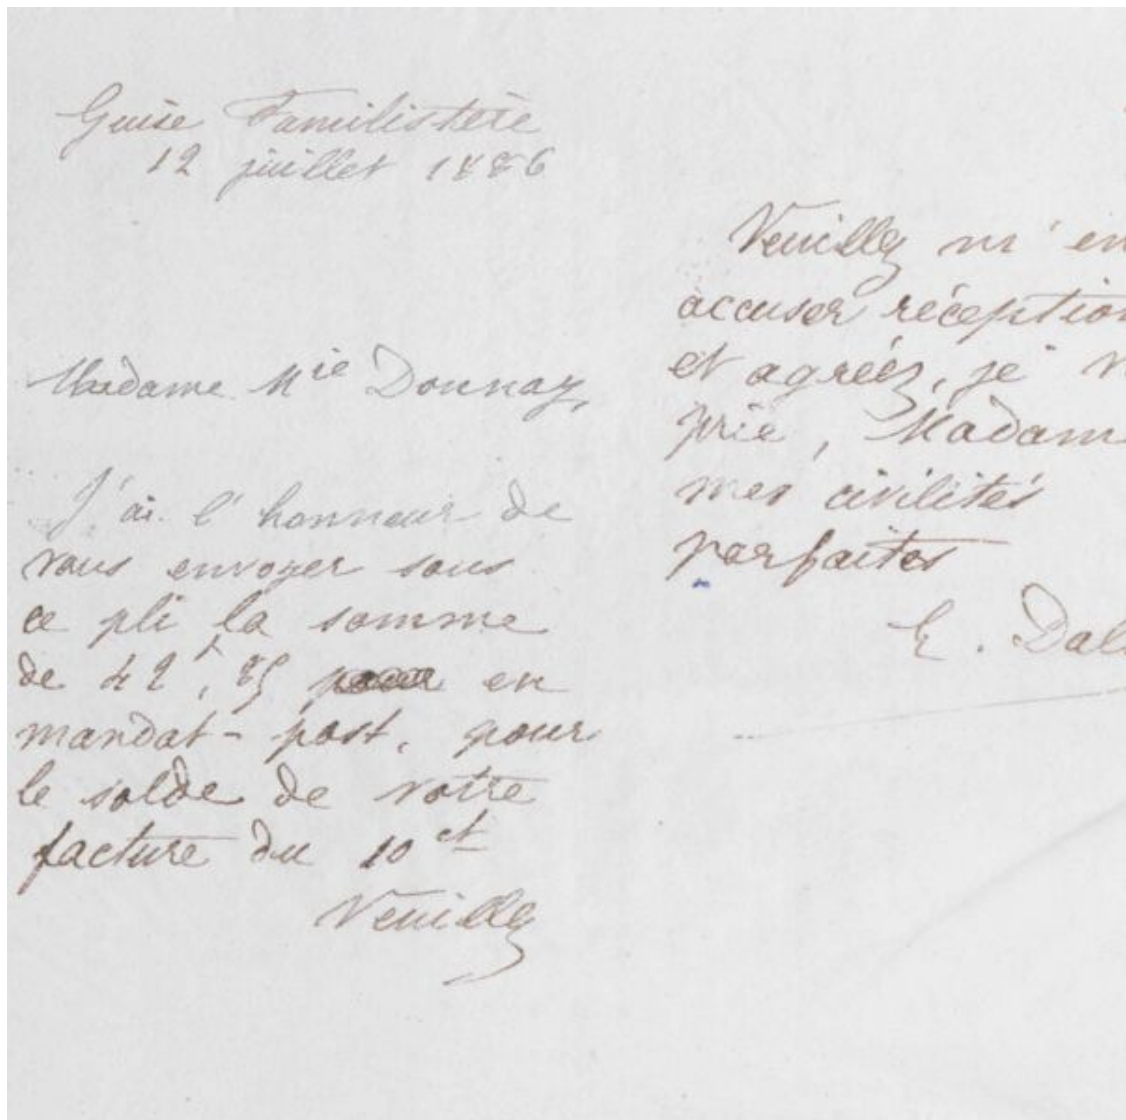 Guise Familistère
12 juillet 1886
Madame Mie Donnay,
J'ai l'honneur de
vous envoyer sous
ce pli la somme
de 42f,85 en
mandat-post, pour
le solde de votre
facture du 10 ct
Veuillez
Veuillez m'en
accuser réception
et agréez, je
prie, Madame
mes civilités
parfaites
E. Dal